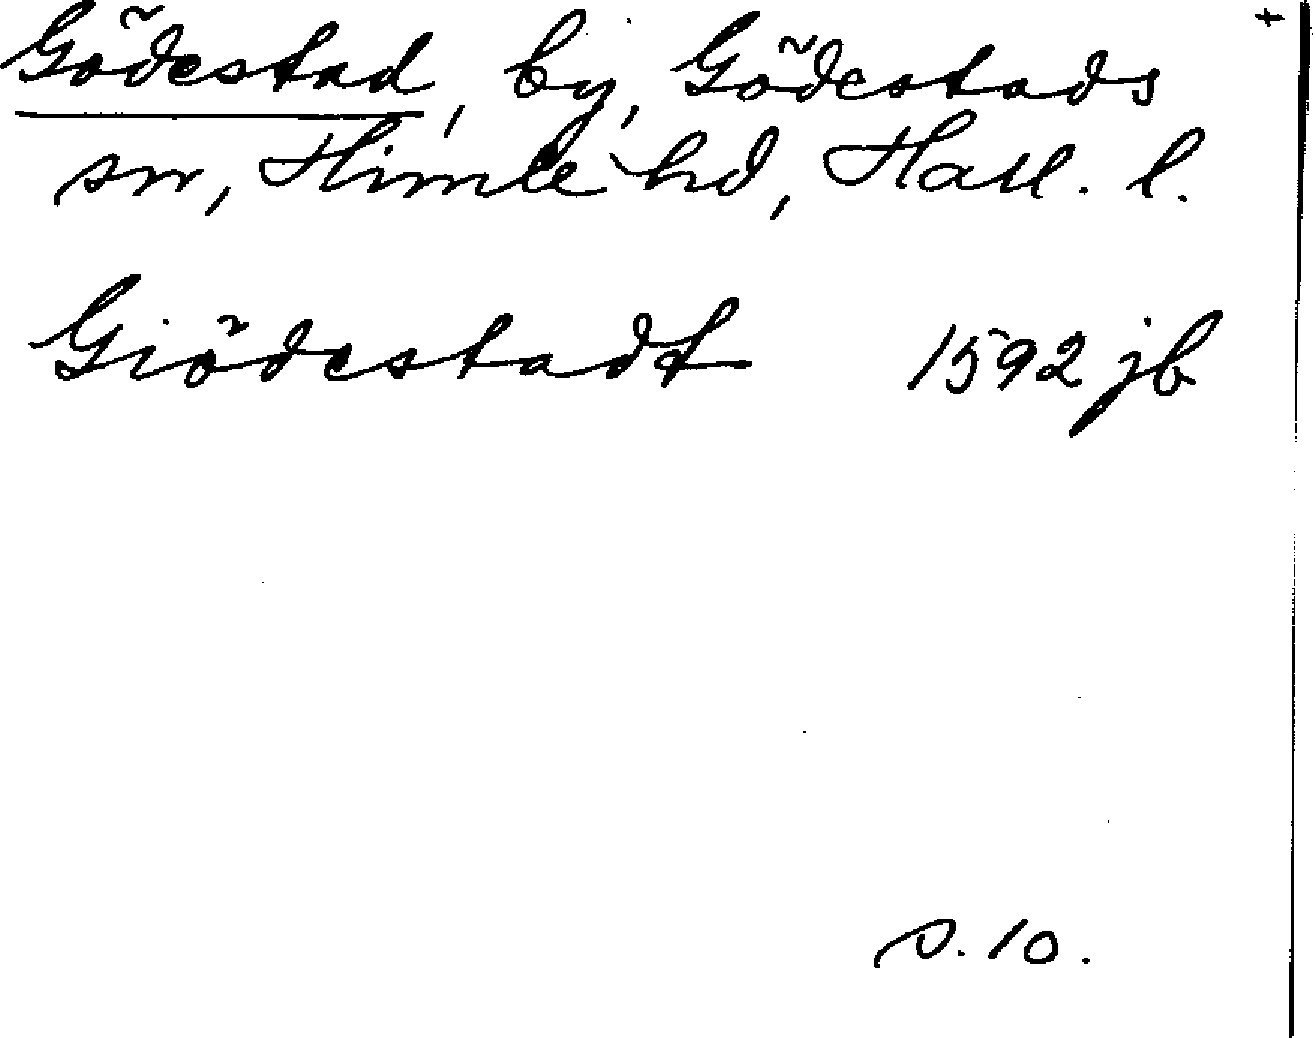 +
Gödestad, by, Gödestads
sn, Himle hd, Hall. l.
Giödestadt 1592 jb
s. 10.